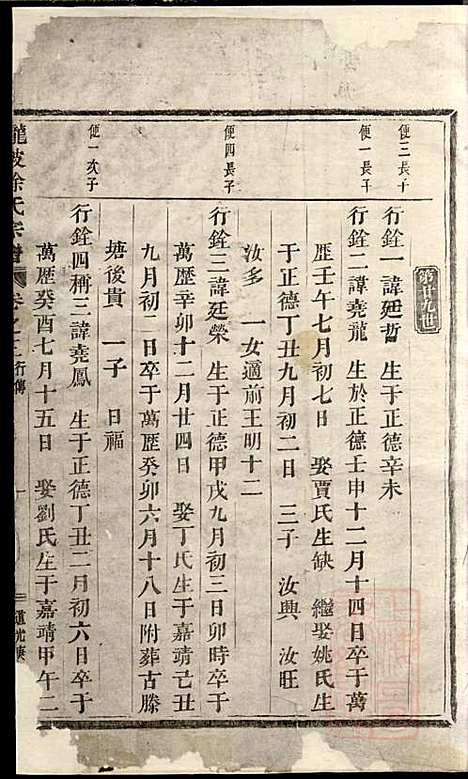 第廿九世
便三長子
行銓一諱廷哲 生于正德辛未
便一長子
行銓二諱堯龍 生於正德壬申十二月十四日卒于萬
歷壬午七月初七日 娶賈氏生缺 繼娶姚氏生
于正德丁丑九月初二日 三子 汝興 汝旺
汝多 一女適前王明十二
便四長子
行銓三諱廷榮 生于正德甲戌九月初三日卯時卒于
萬歷辛卯十二月廿四日 娶丁氏生于嘉靖己丑
九月初二日卒于萬歷癸卯六月十八日附葬古塍
塘後貴 一子 日福
便一次子
行銓四稱三諱堯鳳 生于正德丁丑二月初六日卒于
萬歷癸酉七月十五日 娶劉氏生于嘉靖甲午二
龍坡徐氏宗譜 卷之 行傳
道光庚